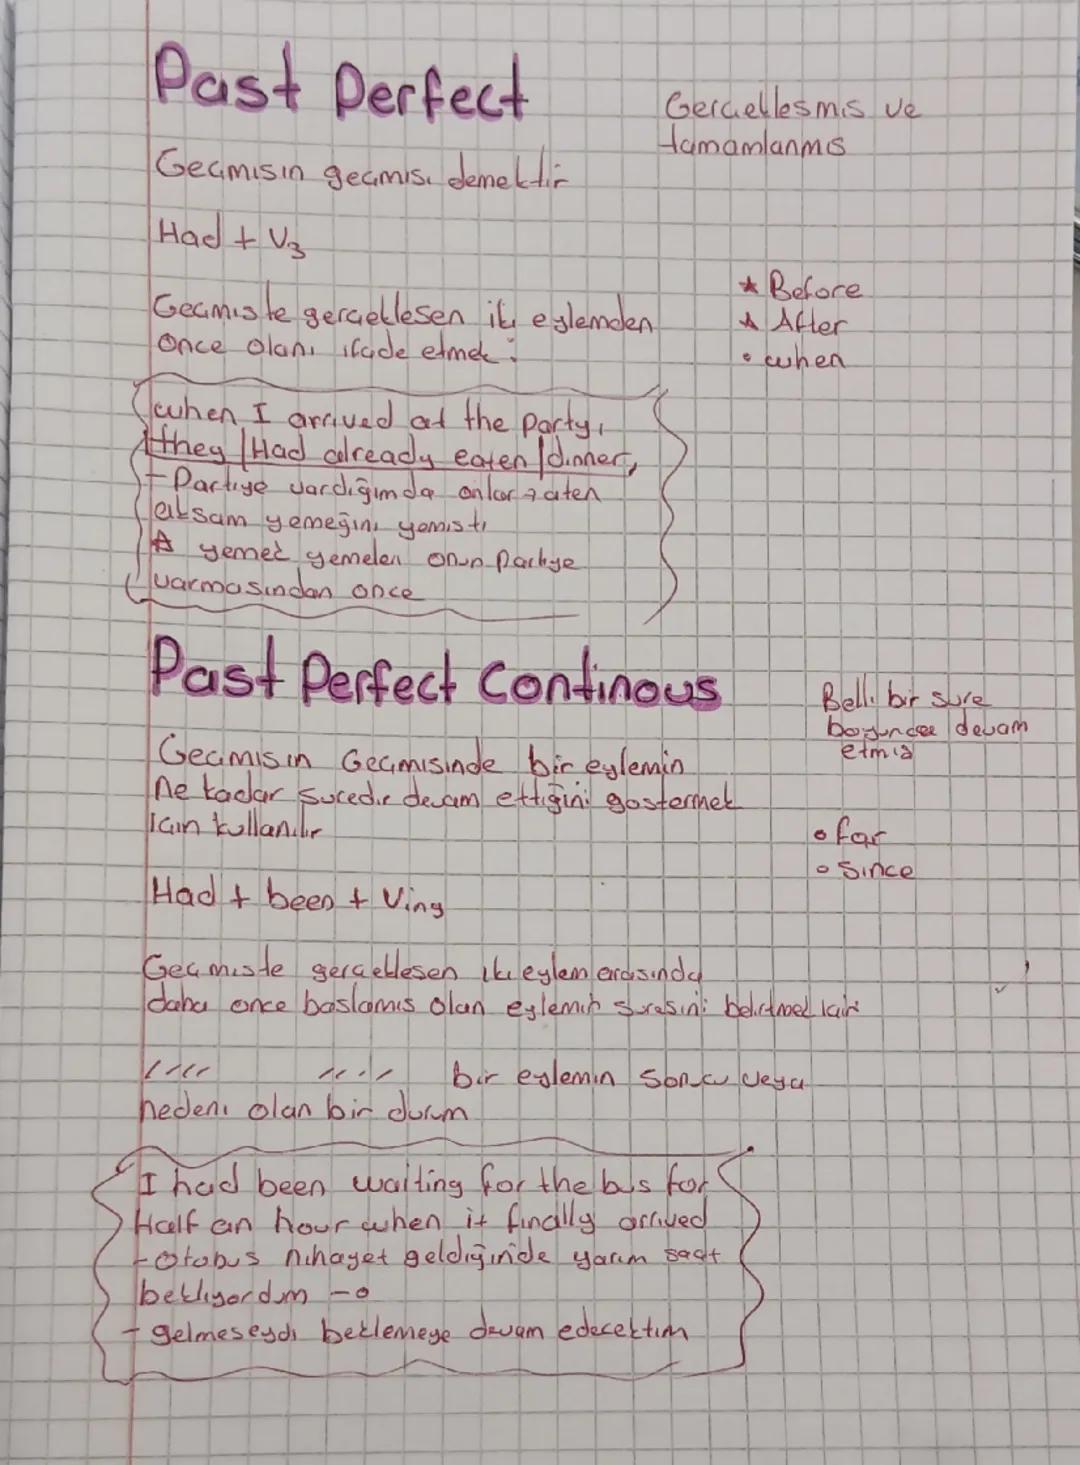 Past Perfect
Gerceklesmis ve
tamamlanmıs
Gecmısın gecmısı demektir
Had + V3
* Before
* After
• when
Gecmıste gerceklesen iki eylemden
Once olanı ifade etmek :
when I arrived at the party,
they | Had already eaten | dinner,
- Partiye vardığımda onlar zaten
aksam yemeğini yemisti
* yemek yemeleri onun partiye
varmasından once
Past Perfect Continous
Belli bir sure
boyunca devam
etmis
Gecmisin Gecmısinde bir eylemin
ne kadar suredir devam ettiğini gostermek
Icın kullanılır
• for
• since
Had + been + Ving
Gecmıste gerceklesen iki eylem arasında
daha once baslamıs olan eylemin suresini belirtmek icin
bir eylemin sonucu veya
nedeni olan bir durum
I had been waiting for the bus for
Half an hour when it finally arrived
- Otobus nihayet geldiğinde yarım saat
bekliyordum
- gelmeseydi beklemeye devam edecektim